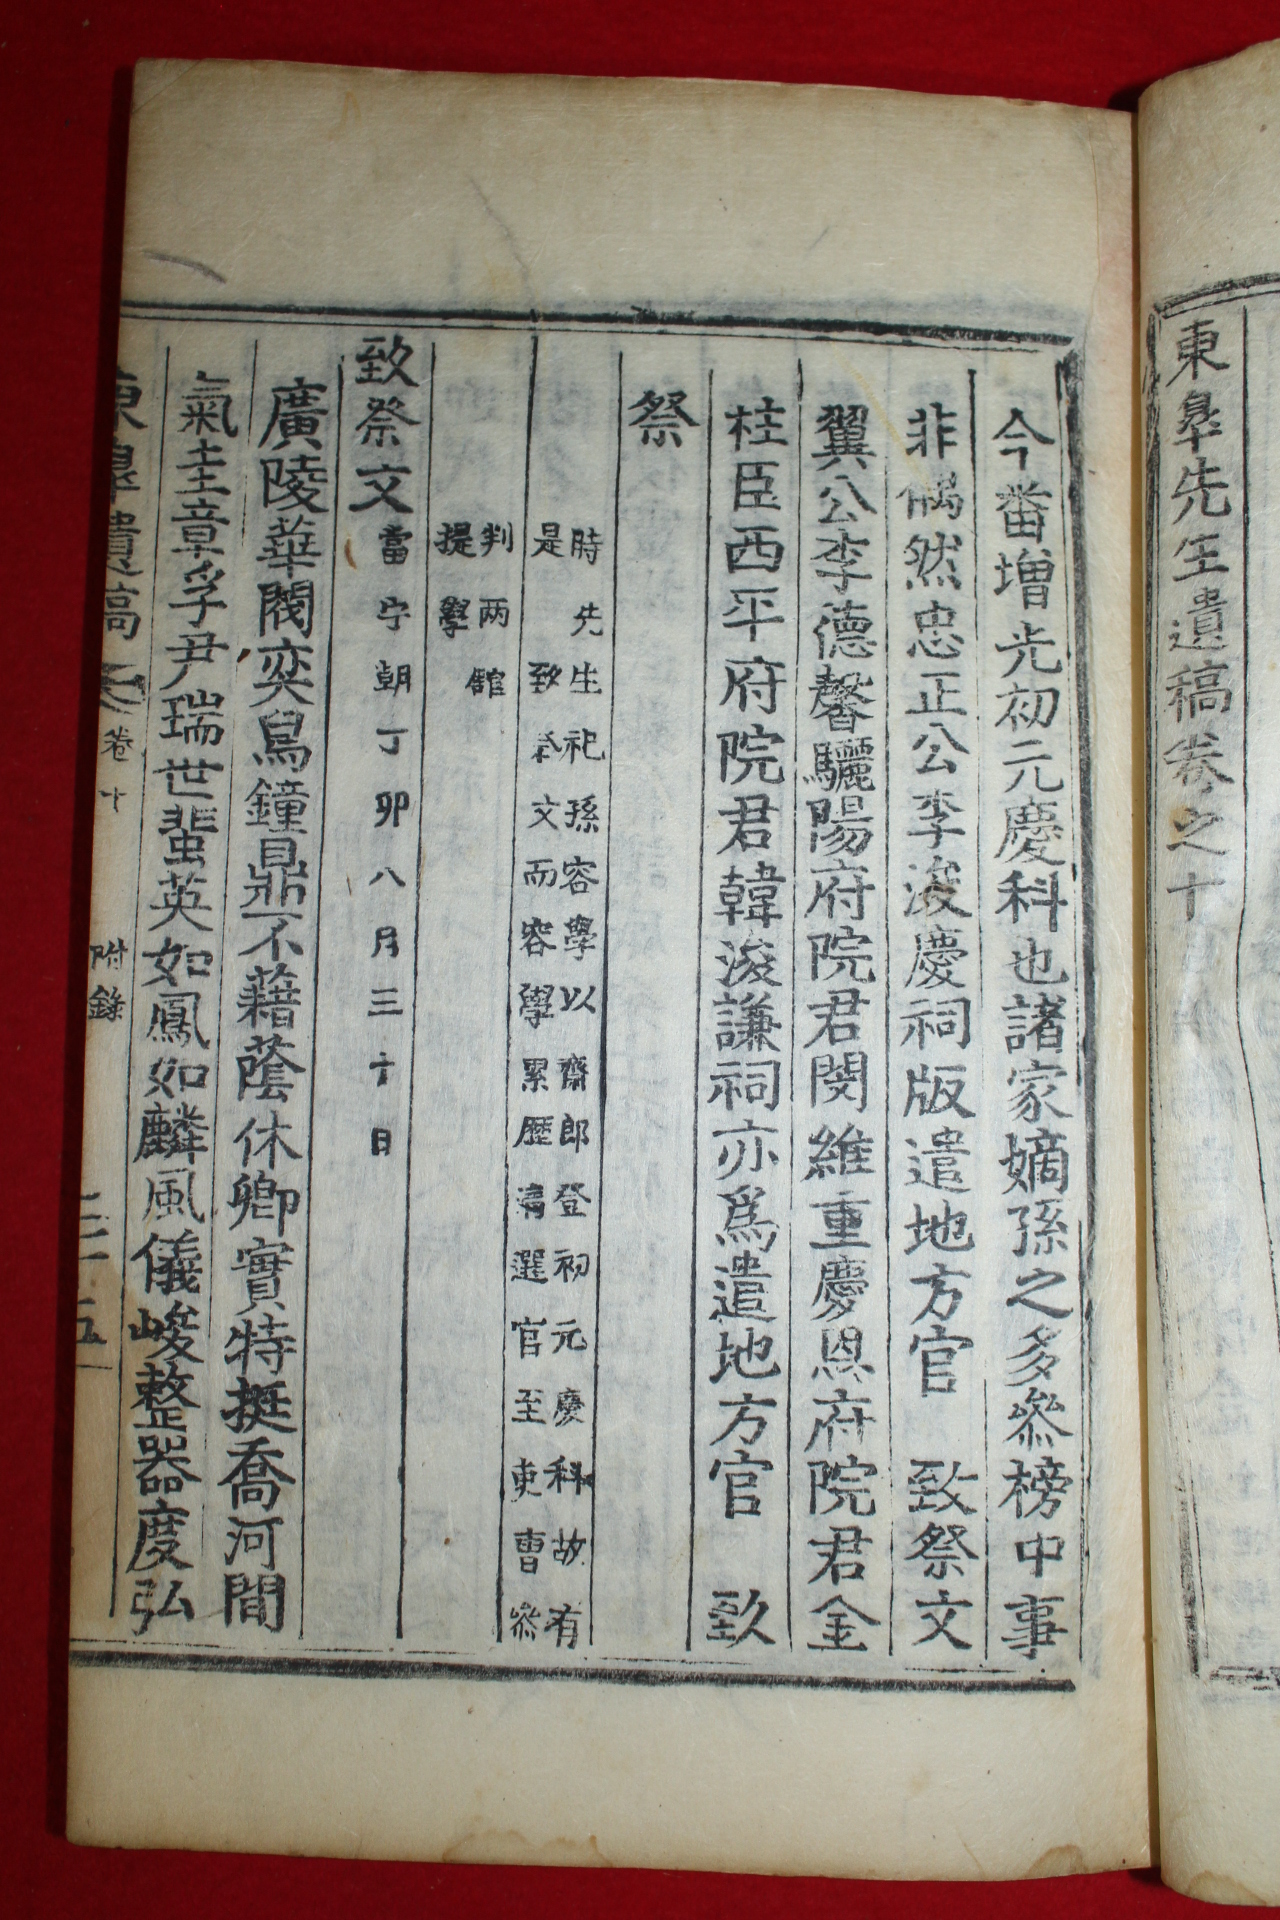 東皐先生遺稿卷之十
今番增光初元慶科也諸家嫡孫之多叅榜中事
非偶然忠正公李浚慶祠版遣地方官 致祭文
翼公李德馨驪陽府院君閔維重慶恩府院君金
柱臣西平府院君韓浚謙祠亦爲遣地方官 致
祭
時先生祀孫容學以齋郎登初元慶科故有
是 致夲文而容學累歷淸選官至吏曹叅
判两舘
提學
致祭文 當宁朝丁卯八月三十日
廣陵華閥奕舃鐘鼎不藉蔭休卿實特挺喬河間
氣圭章孚尹瑞世蜚英如鳳如麟風儀峻整器度弘
東皐遺稿 卷十 附錄